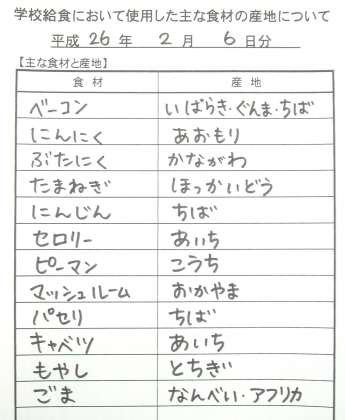 学校給食において使用した主な食材の産地について
平成 26 年 2 月 6 日分
【主な食材と産地】
食材 産地
ベーコン いばらき・ぐんま・ちば
にんにく あおもり
ぶたにく かながわ
たまねぎ ほっかいどう
にんじん ちば
セロリー あいち
ピーマン こうち
マッシュルーム おかやま
パセリ ちば
キャベツ あいち
もやし とちぎ
ごま なんべい・アフリカ